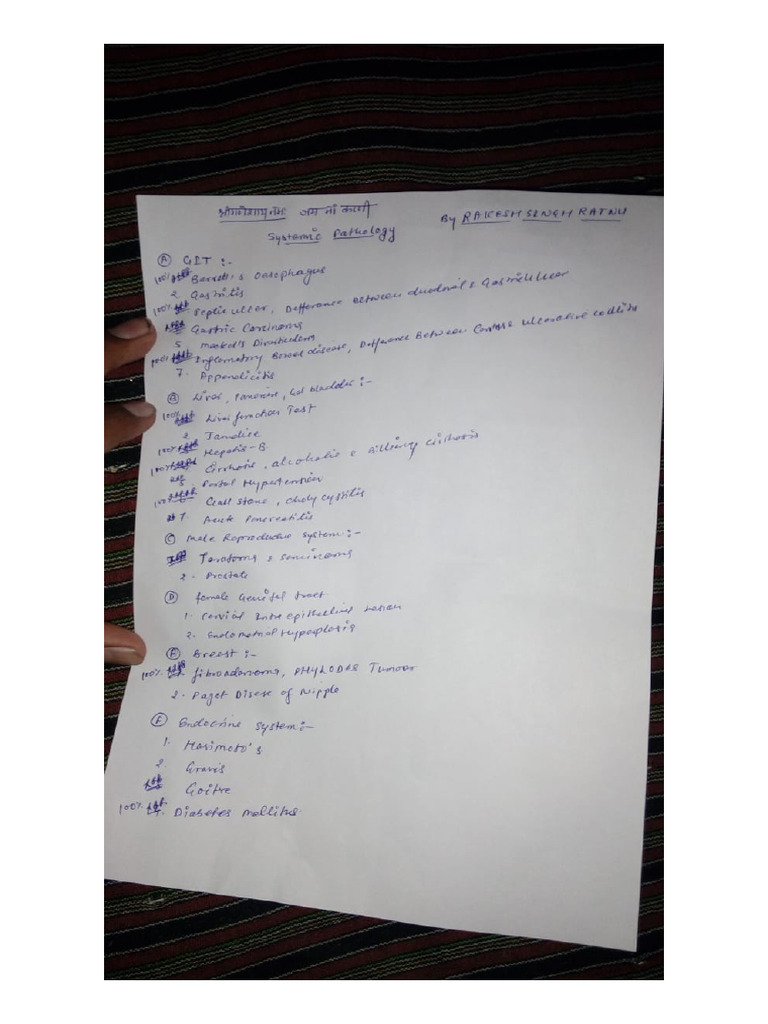 श्री गणेशाय नमः जय माँ करणी
By RAKESH SINGH RATNU
Systemic Pathology
(A) GIT :-
100% Barrett's Oesophagus
2 Gastritis
100% Peptic ulcer, Difference Between duodenal & Gastric ulcer
Gastric Carcinoma
5 Meckel's Diverticulum
100% Inflamatory Bowel disease, Difference Between & ulcerative collitis
7. Appendicitis
(B) Liver, Pancrease, Gal bladder :-
100% Liver function Test
2 Jaundice
100% Hepatis-B
100% Cirrhosis, alcoholic & Billiary cirrhosis
5 Portal Hypertension
100% Gall stone, Choly cystitis
7. Acute Pancreatitis
(C) Male Reproductive system :-
Teratoma & seminoma
2. Prostate
(D) female Genital tract
1. Cervical Intra epithelial Lesion
2. Endometrial Hyperplasia
(E) Breast :-
100% fibroadenoma, PHYLODES Tumour
2. Paget Disese of Nipple
(F) Endocrine system :-
1. Hasimoto's
2. Gravis
Goitre
100% Diabetes Mellitus